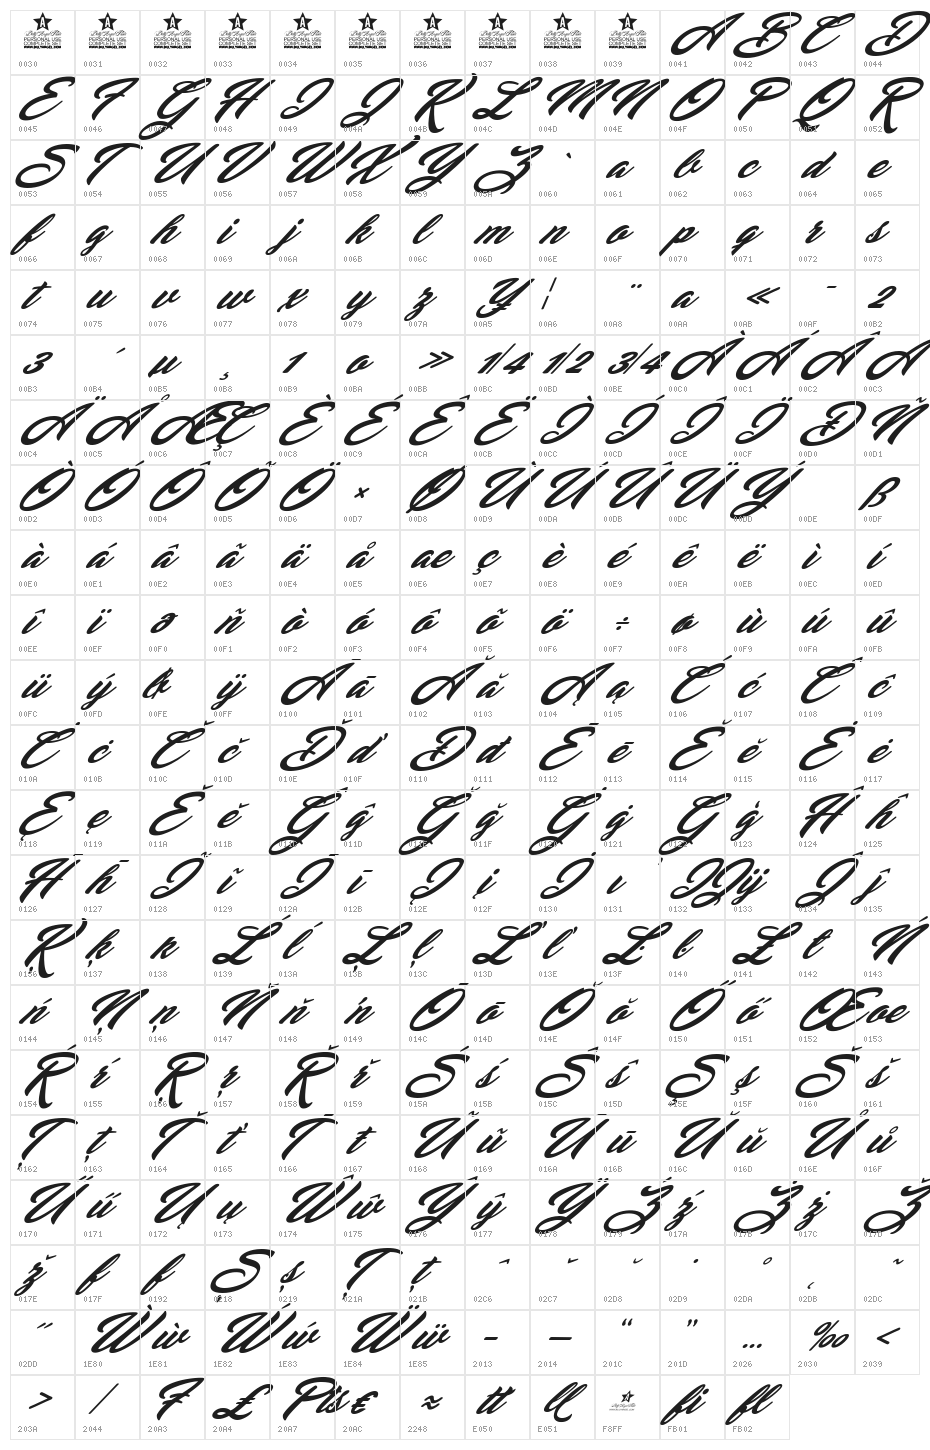 A B C D
0030 0031 0032 0033 0034 0035 0036 0037 0038 0039 0041 0042 0043 0044
E F G H I J K L M N O P Q R
0045 0046 0047 0048 0049 004A 004B 004C 004D 004E 004F 0050 0051 0052
S T U V W X Y Z ` a b c d e
0053 0054 0055 0056 0057 0058 0059 005A 0060 0061 0062 0063 0064 0065
f g h i j k l m n o p q r s
0066 0067 0068 0069 006A 006B 006C 006D 006E 006F 0070 0071 0072 0073
t u v w x y z ¥ ¦ ¨ ª « ¯ ²
0074 0075 0076 0077 0078 0079 007A 00A5 00A6 00A8 00AA 00AB 00AF 00B2
³ ´ µ ¸ ¹ º » 1/4 1/2 3/4 À Á Â Ã
00B3 00B4 00B5 00B8 00B9 00BA 00BB 00BC 00BD 00BE 00C0 00C1 00C2 00C3
Ä Å Æ Ç È É Ê Ë Ì Í Î Ï Ð Ñ
00C4 00C5 00C6 00C7 00C8 00C9 00CA 00CB 00CC 00CD 00CE 00CF 00D0 00D1
Ò Ó Ô Õ Ö × Ø Ù Ú Û Ü Ý ß
00D2 00D3 00D4 00D5 00D6 00D7 00D8 00D9 00DA 00DB 00DC 00DD 00DE 00DF
à á â ã ä å æ ç è é ê ë ì í
00E0 00E1 00E2 00E3 00E4 00E5 00E6 00E7 00E8 00E9 00EA 00EB 00EC 00ED
î ï ð ñ ò ó ô õ ö ÷ ø ù ú û
00EE 00EF 00F0 00F1 00F2 00F3 00F4 00F5 00F6 00F7 00F8 00F9 00FA 00FB
ü ý þ ÿ Ā ā Ă ă Ą ą Ć ć Ĉ ĉ
00FC 00FD 00FE 00FF 0100 0101 0102 0103 0104 0105 0106 0107 0108 0109
Ċ ċ Č č Ď ď Đ đ Ē ē Ĕ ĕ Ė ė
010A 010B 010C 010D 010E 010F 0110 0111 0112 0113 0114 0115 0116 0117
Ę ę Ě ě Ĝ ĝ Ğ ğ Ġ ġ Ģ ģ Ĥ ĥ
0118 0119 011A 011B 011C 011D 011E 011F 0120 0121 0122 0123 0124 0125
Ħ ħ Ĩ ĩ Ī ī Į į İ ı Ĳ ĳ Ĵ ĵ
0126 0127 0128 0129 012A 012B 012E 012F 0130 0131 0132 0133 0134 0135
Ķ ķ ĸ Ĺ ĺ Ļ ļ Ľ ľ Ŀ ŀ Ł ł Ń
0136 0137 0138 0139 013A 013B 013C 013D 013E 013F 0140 0141 0142 0143
ń Ņ ņ Ň ň ŉ Ō ō Ŏ ŏ Ő ő Œ œ
0144 0145 0146 0147 0148 0149 014C 014D 014E 014F 0150 0151 0152 0153
Ŕ ŕ Ŗ ŗ Ř ř Ś ś Ŝ ŝ Ş ş Š š
0154 0155 0156 0157 0158 0159 015A 015B 015C 015D 015E 015F 0160 0161
Ţ ţ Ť ť Ŧ ŧ Ũ ũ Ū ū Ŭ ŭ Ů ů
0162 0163 0164 0165 0166 0167 0168 0169 016A 016B 016C 016D 016E 016F
Ű ű Ų ų Ŵ ŵ Ŷ ŷ Ÿ Ź ź Ż ż Ž
0170 0171 0172 0173 0174 0175 0176 0177 0178 0179 017A 017B 017C 017D
ž ſ ƒ Ș ș Ț ț ˆ ˇ ˘ ˙ ˚ ˛ ˜
017E 017F 0192 0218 0219 021A 021B 02C6 02C7 02D8 02D9 02DA 02DB 02DC
˝ Ẁ ẁ Ẃ ẃ Ẅ ẅ – — “ ” … ‰ ‹
02DD 1E80 1E81 1E82 1E83 1E84 1E85 2013 2014 201C 201D 2026 2030 2039
› ⁄ ₣ ₤ Pts € ≈ tt ll fi fl
203A 2044 20A3 20A4 20A7 20AC 2248 E050 E051 F8FF FB01 FB02